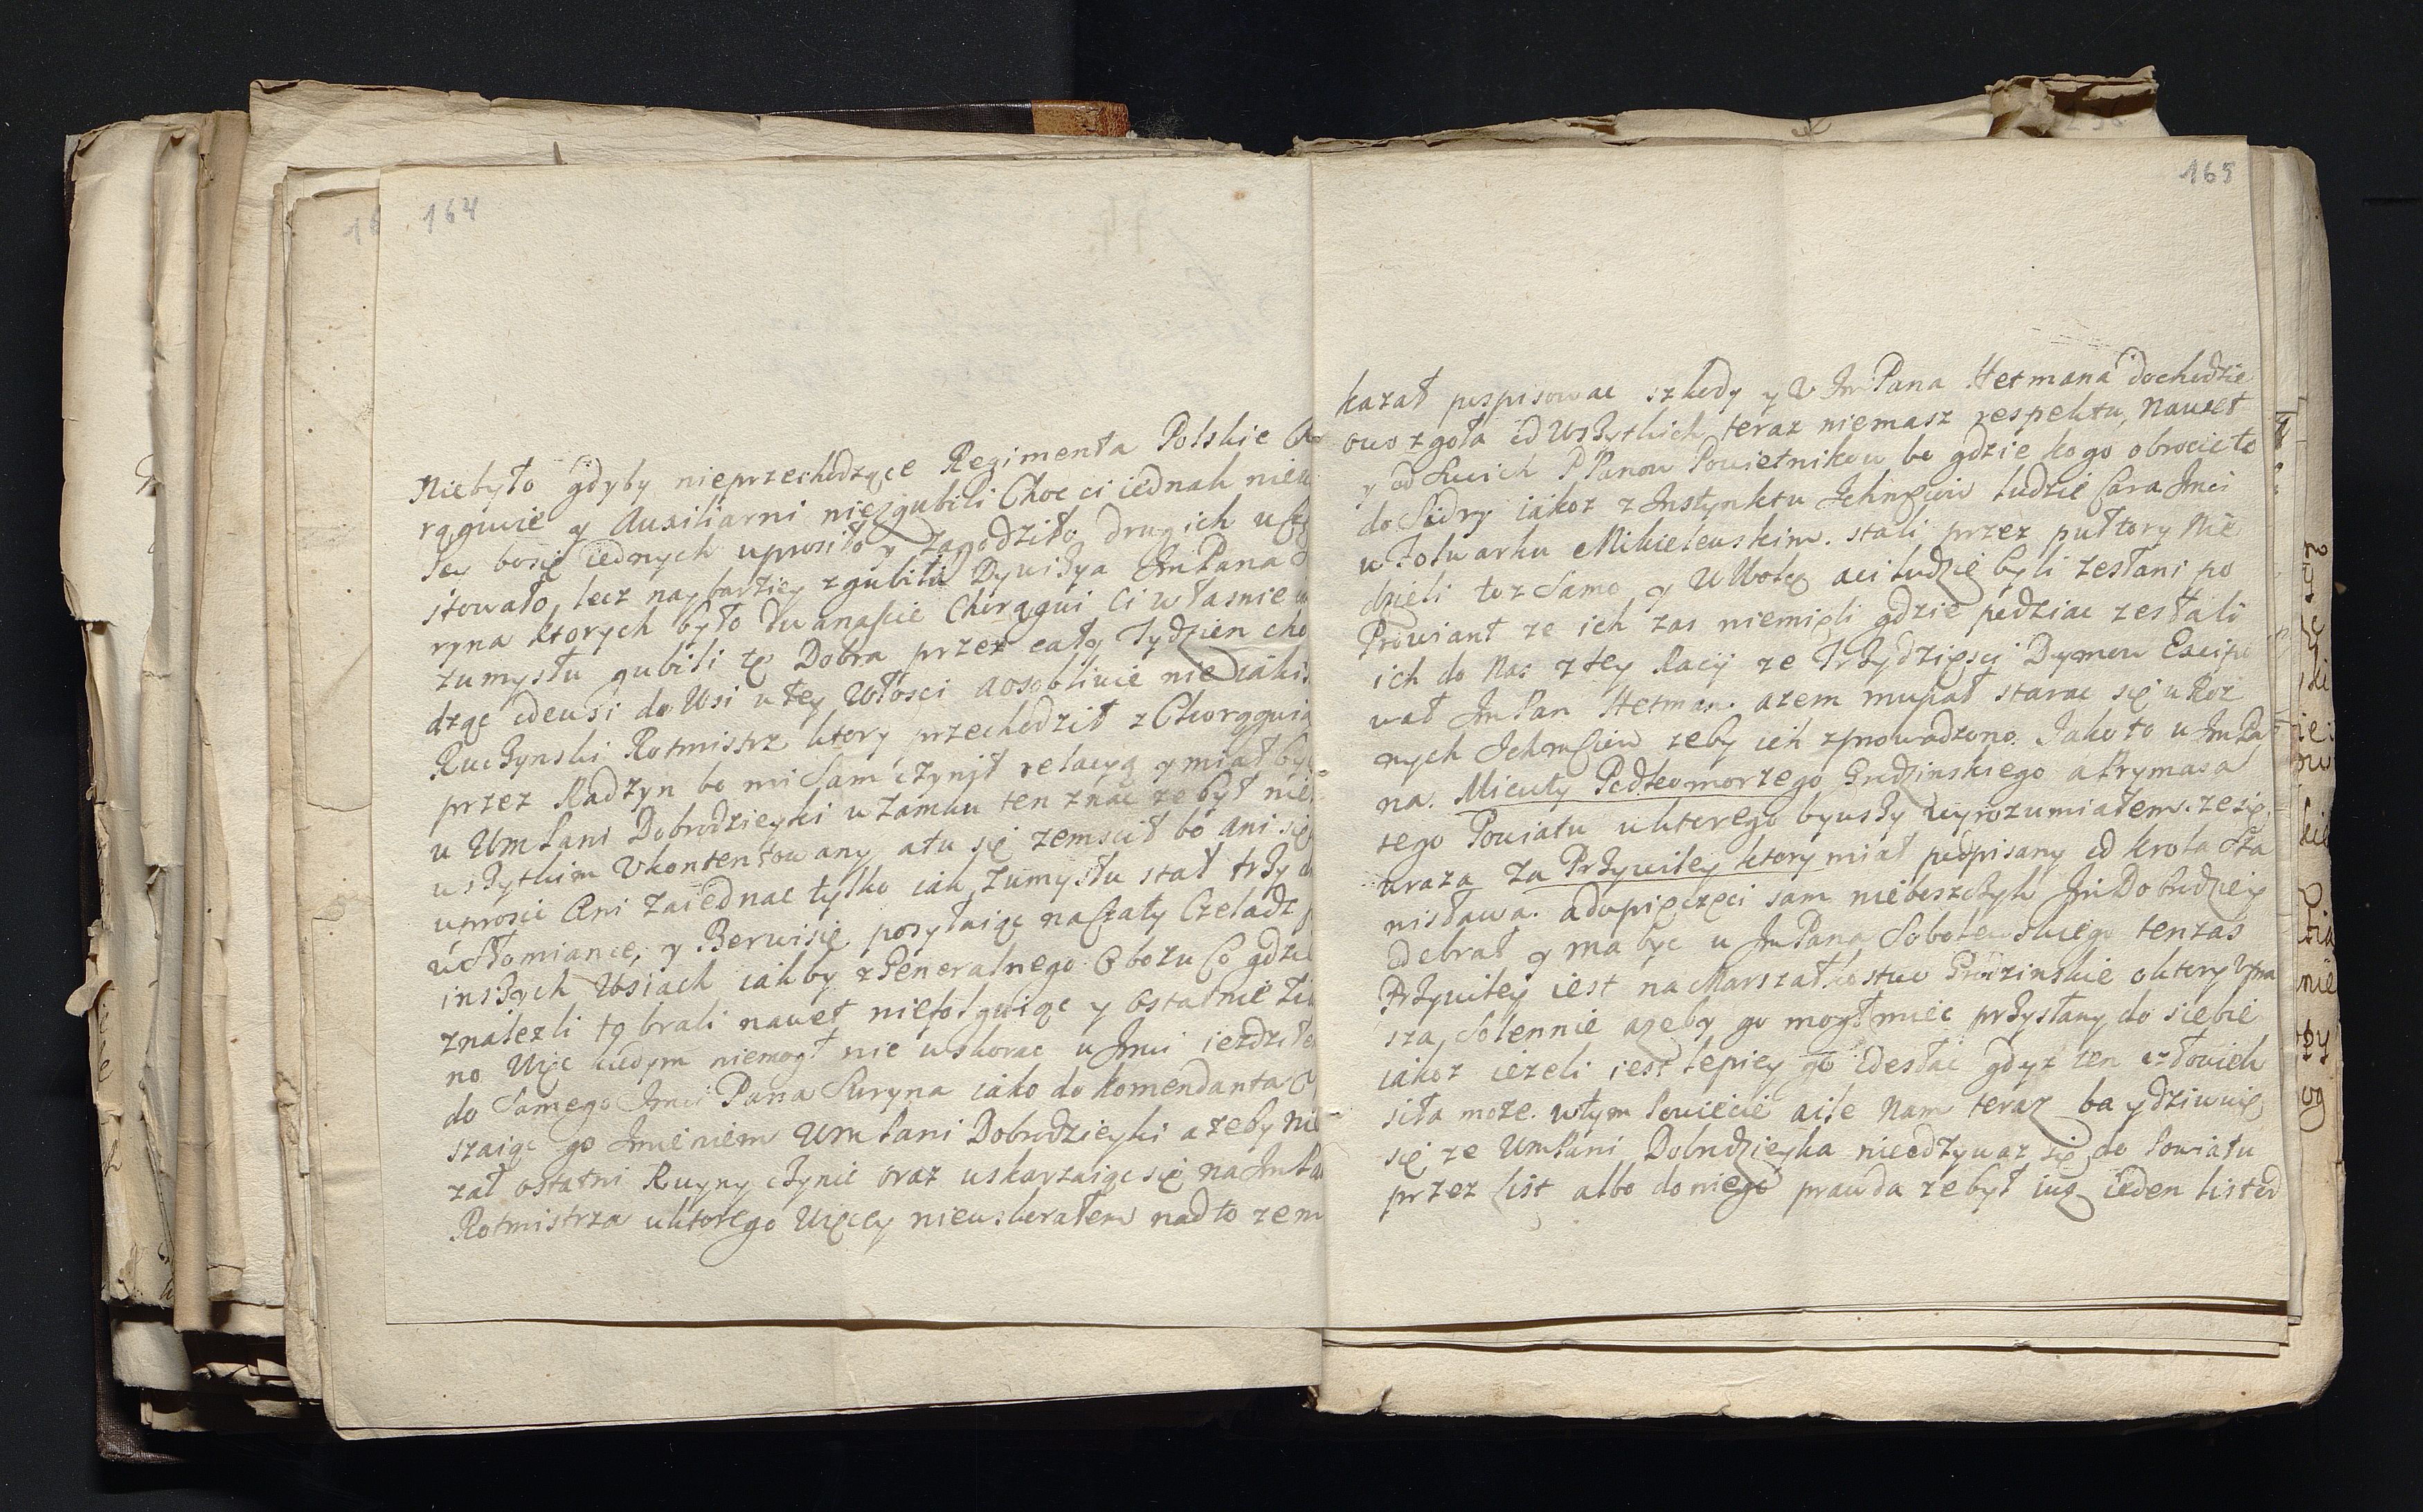 164
Niebyło gdyby nieprzechodzące Regimenta Polskie
rągwie y Auxiliarni niezgubili Choc ci iednak
sey bosię iednych uprosiło y zagodziło drugich
stowało, lecz naybarziey zgubiła Dywizya ImPana
ryna ktorych było dwanascie Chorągwi Ci własnie
zumysłu gubili tę Dobra przez cały Tydzien cho
dząc odewsi do Wsi wtey Włosci aosobliwie nieiakis
Ruczynski Rotmistrz ktory przechodził z Chorągwią
przez Radzyn bo mi sam czynił relacyą ymiał
u WmPani Dobrodzieyki wZamku ten znac ze był
wszytkim Vkontentowany atu się zemscił bo ani się
uprosic Ani zaiednac tylko iak zumysłu stał trzy
wSłomiance, y Berwisię posyłaiąc naCzaty Czeladz
inszych Wsiach iakby z Generalnego Obozu Co gdzie
znalezli to brali nawet niefolguiąc y Ostatnie
no Więc kiedym niemogł nic wskorac u Jmci iezdziłem
do Samego Jmci Pana Skryna iako do Komendanta
szaiąc go Imieniem WmPani Dobrodzieyki azeby
zał ostatni Ruyny czynic oraz uskarzaiąc się na ImPa
Rotmistrza uktorego Więcey niewskorałem nadto zem
165
kazał pospisowac szkody y V ImPana Hetmana dochodzic
owo zgoła od Wszytkich teraz niemasz respektu, Nawet
y od Swich PPanow Powietnikow bo gdzie kogo obrocic to
do Sidry iakoz z Instynktu Ichmciow ludzie Cara Jmci
wFolwarku Mikielewskim. stali przez pułtory Nie
dzieli toz Samo y WWolcę aciludzie byli zesłani po
Prowiant ze ich zas niemieli gdzie podziac zesłali
ich do Nas z tey Racij ze Trzydzięsci Dymow Excypo
wał ImPan Hetman. azem mupał starac się u Roz
nych Ichmciow zeby ich zprowadzono. Jako to u ImPa
na. Micuty Podkomorzego Grodzinskiego aPrymasa
tego Powiatu uktorego bywszy wyrozumiałem. ze się
uraza Za Przywiley ktory miał podpisany od krola Sta
nisława. adopięczęci sam nieboszczyk Jm Dobrodziey
odebrał y ma byc u ImPana Sobolewskiego tenzas
Przywiley iest na Marszałkostwo Grodzinskie oktory Vpra
sza Solennie azeby go mogł miec przysłany do siebie
iakoz iezeli iest lepiey go odesłac gdyz ten człowiek
siła moze. wtym Powiecie aile Nam teraz ba ydziwuię
się ze WmPani Dobrodzieyka nieodzywaz się do Powiatu
przez list albo do niego prawda ze był iuz ieden list od